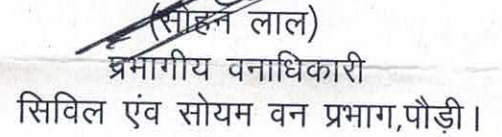 (सोहन लाल)
प्रभागीय वनाधिकारी
सिविल एंव सोयम वन प्रभाग,पौड़ी।